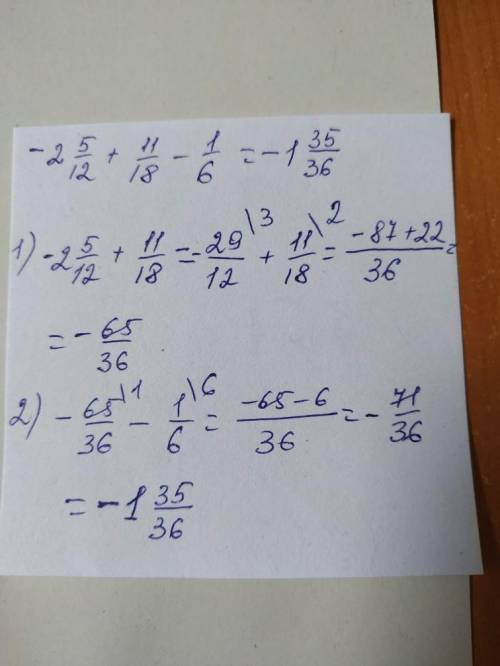 -2 5/12 + 11/18 - 1/6 = -1 35/36
1) -2 5/12 + 11/18 = -29/12 \3 + 11/18 \2 = (-87+22)/36 =
= -65/36
2) -65/36 \1 - 1/6 \6 = (-65-6)/36 = -71/36
= -1 35/36